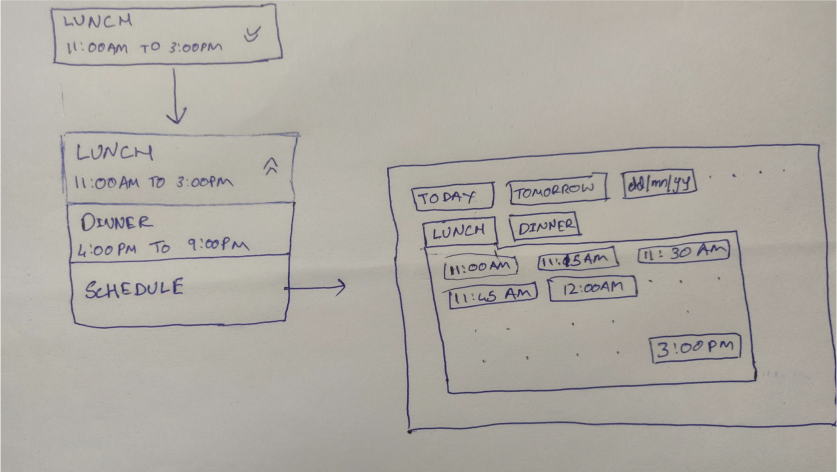 LUNCH
11:00AM TO 3:00PM
LUNCH
11:00AM TO 3:00PM
DINNER
4:00PM TO 9:00PM
SCHEDULE
TODAY TOMORROW dd/mm/yy
LUNCH DINNER
11:00AM 11:15AM 11:30 AM
11:45 AM 12:00AM
3:00PM